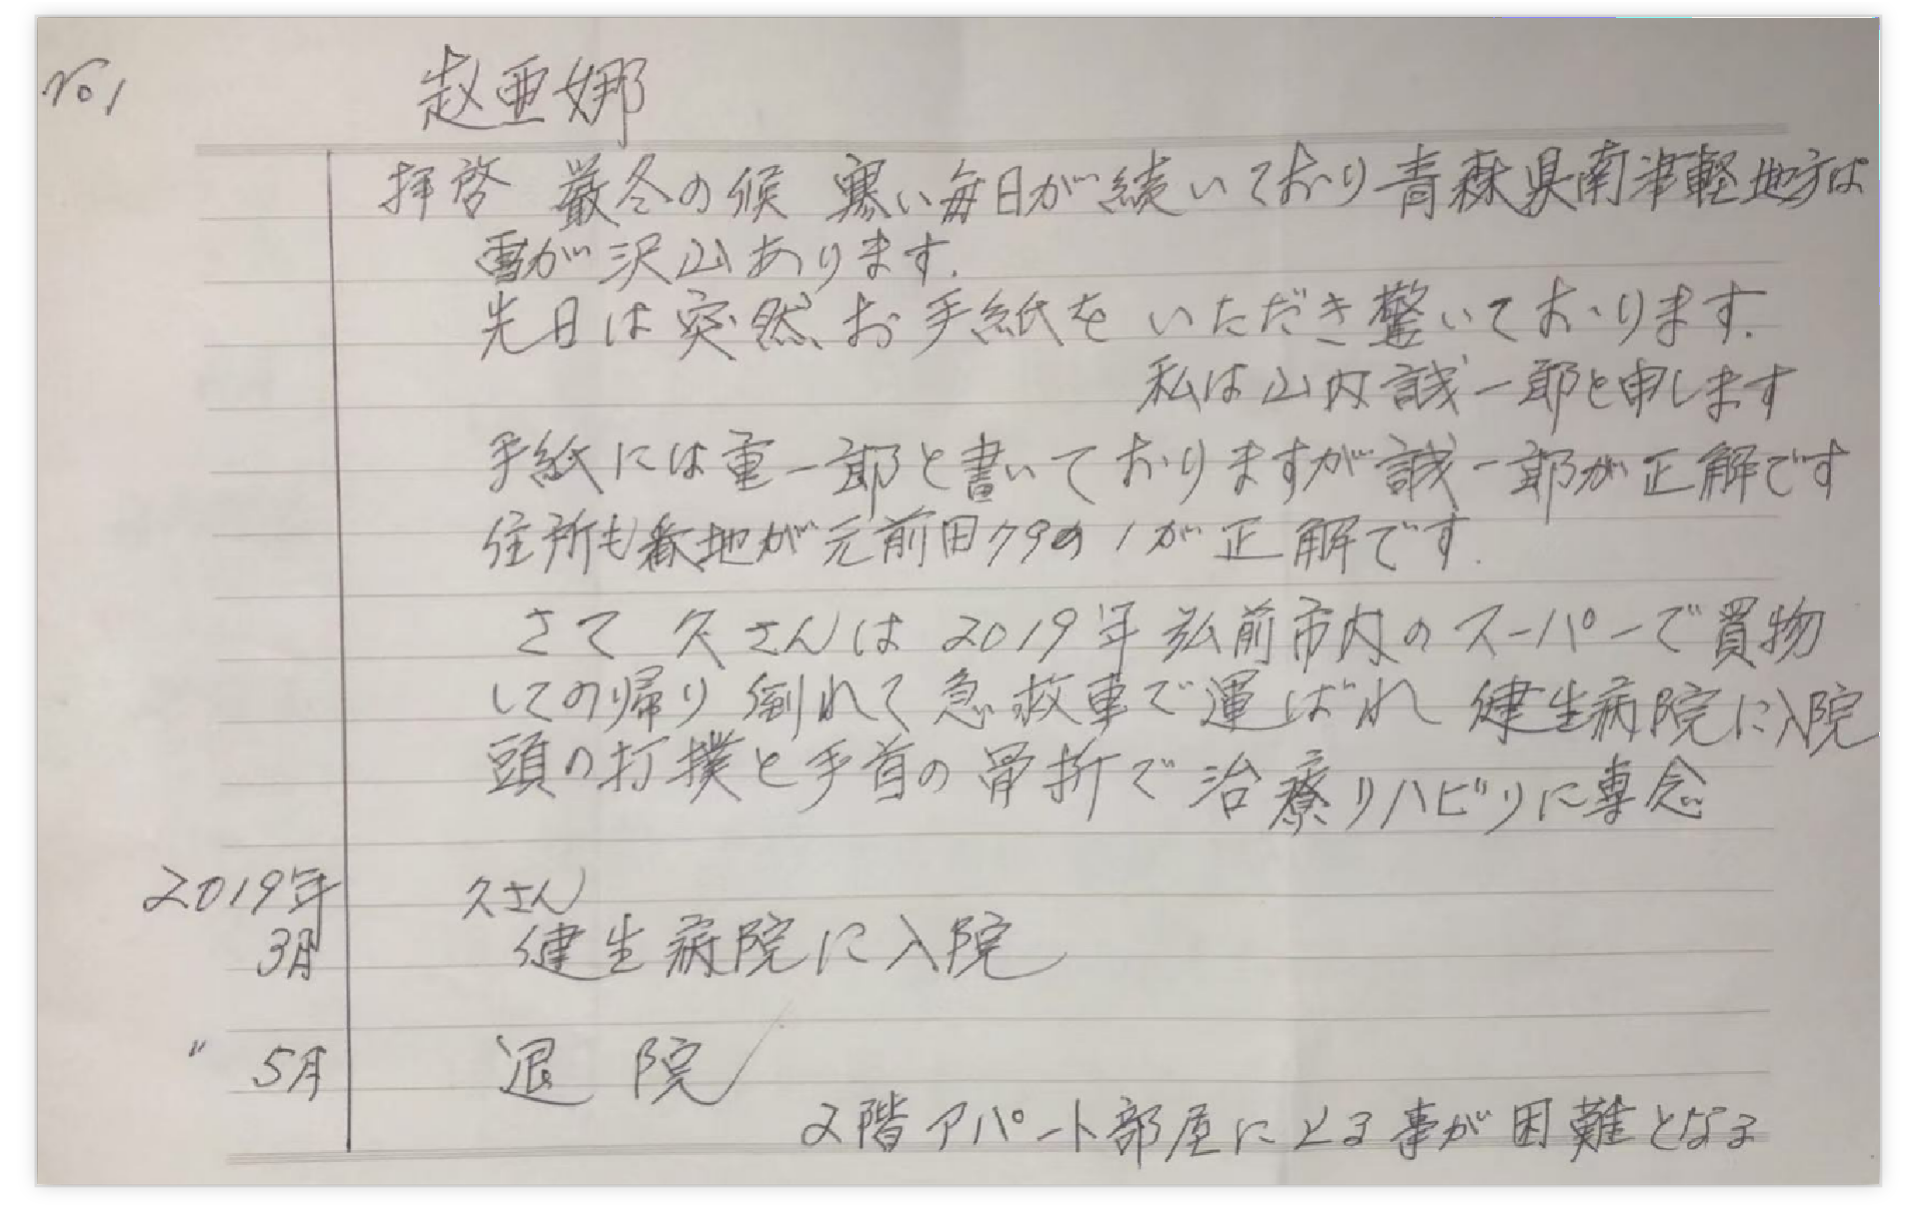 No1
赵亜娜
拝啓 厳冬の候 寒い毎日が続いており青森県南津軽地方は
雪が沢山あります.
先日は突然、お手紙を いただき驚いております.
私は山内誠一郎と申します
手紙には重一郎と書いておりますが誠一郎が正解です
住所も番地が元前田79の1が正解です.
さて 久さんは 2019年 弘前市内のスーパーで買物
しての帰り 倒れて急救車で運ばれ 健生病院に入院
頭の打撲と手首の骨折で治療リハビリに専念
2019年 久さん
3月 健生病院に入院
〃 5月 退院
2階アパート部屋に上る事が困難となる